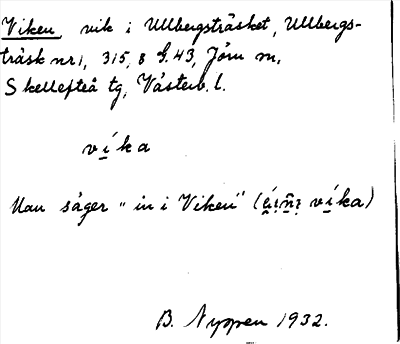 Viken vik i Ullbergsträsket, Ullbergs-
träsk nr 1, 315, 8 G.43, Jörn sn,
Skellefteå tg, Västerb. l.
vi̱ka
Man säger "in i Viken" (vi̱ka)
B. Nyppen 1932.